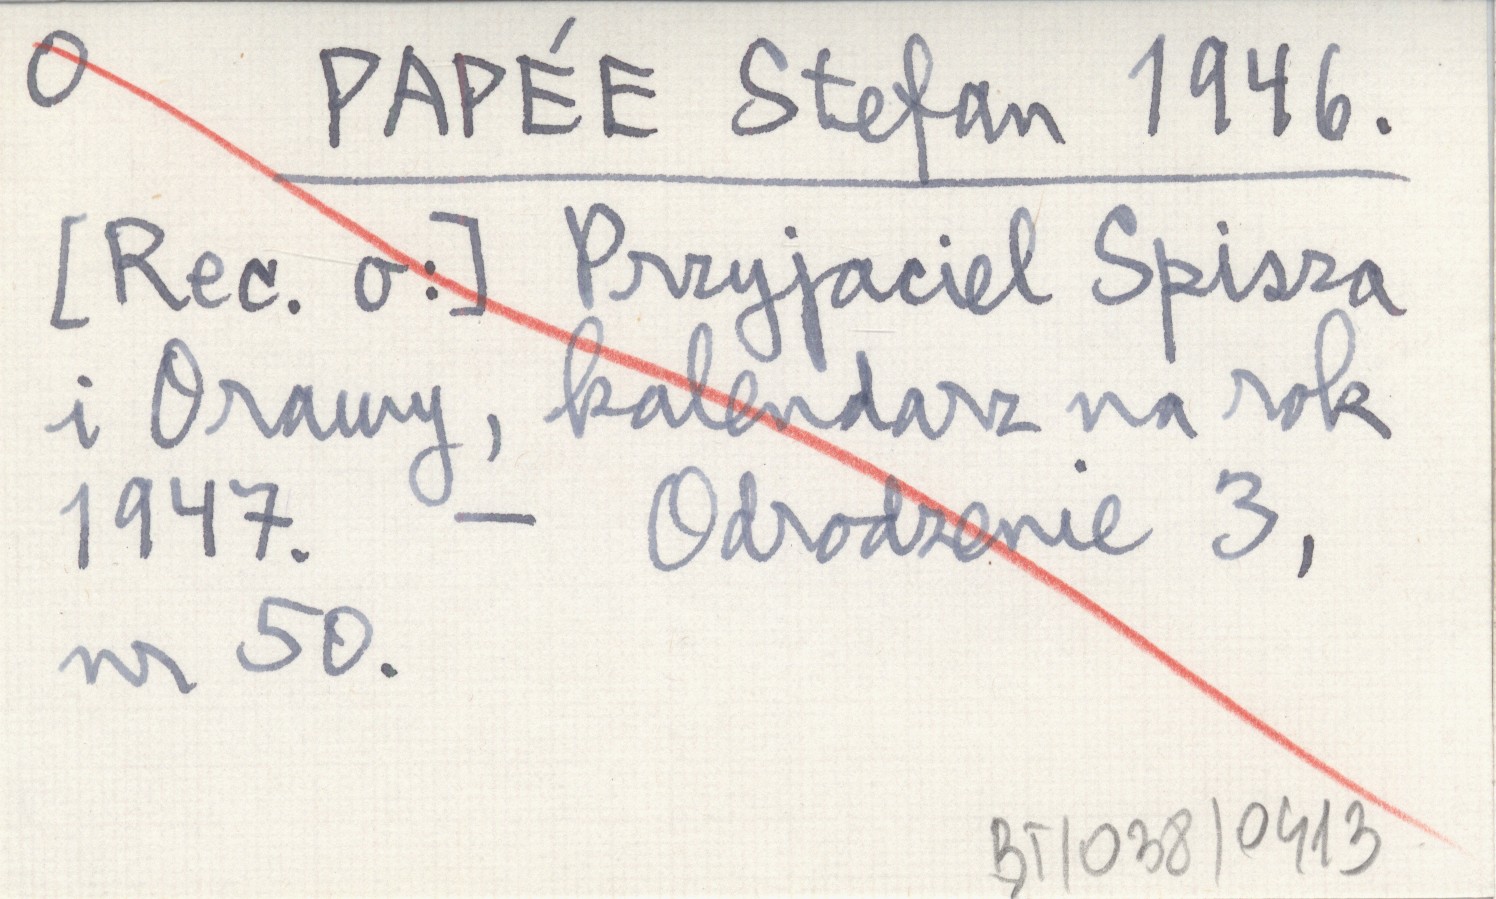 O PAPÉE Stefan 1946.
[Rec. o:] Przyjaciel Spisza
i Orawy, kalendarz na rok
1947. — Odrodzenie 3,
nr 50.
BT/038/0413